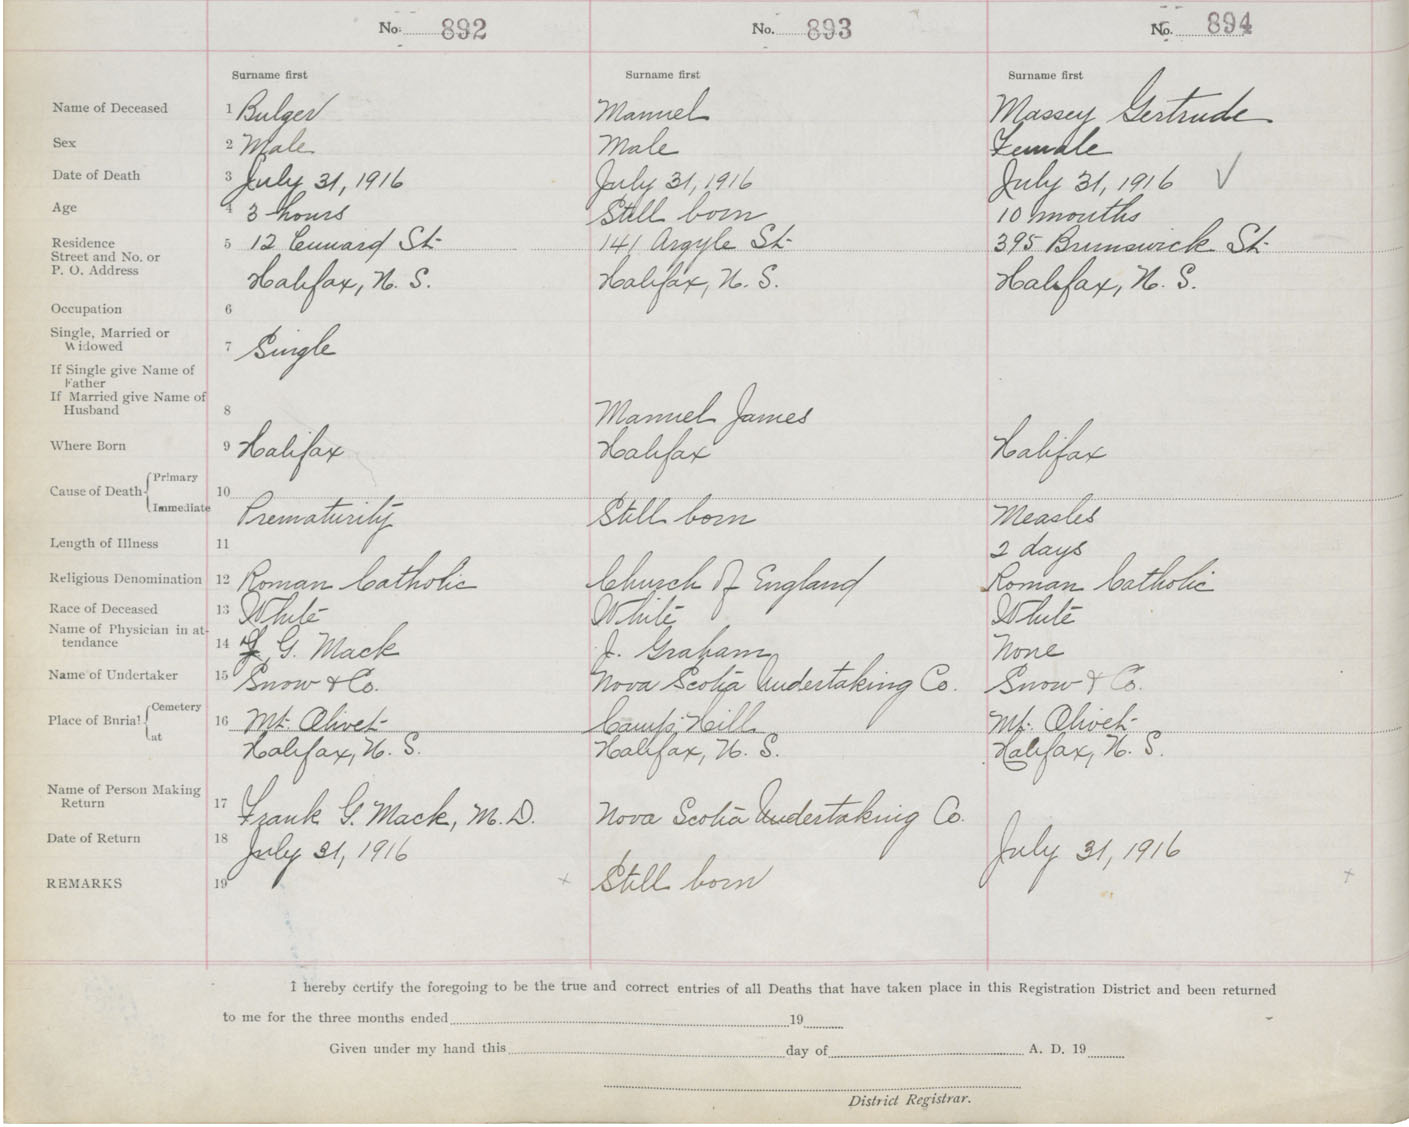 No. 892 No. 893 No. 894
Surname first Surname first Surname first
Name of Deceased 1 Bulger Manuel Massey Gertrude
Sex 2 Male Male Female
Date of Death 3 July 31, 1916 July 31, 1916 July 31, 1916 ✓
Age 4 3 hours Still born 10 months
Residence
Street and No. or 5 12 St. 141 Argyle St. 395 Brunswick St.
P. O. Address
Halifax, N. S. Halifax, N. S. Halifax, N. S.
Occupation 6
Single, Married or
Widowed 7 Single
If Single give Name of
Father
If Married give Name of
Husband 8 Manuel James
Where Born 9 Halifax Halifax Halifax
Cause of Death { Primary 10
Immediate Prematurity Still born Measles
Length of Illness 11 2 days
Religious Denomination 12 Roman Catholic Church of England Roman Catholic
Race of Deceased 13 White White White
Name of Physician in at-
tendance 14 F. G. Mack J. Graham None
Name of Undertaker 15 Snow & Co. Nova Scotia Undertaking Co. Snow & Co.
Place of Burial { Cemetery 16 Mt. Olivet Camp Hill Mt. Olivet
at Halifax, N. S. Halifax, N. S. Halifax, N. S.
Name of Person Making
Return 17 Frank G. Mack, M.D. Nova Scotia Undertaking Co.
Date of Return 18 July 31, 1916 July 31, 1916
REMARKS 19 x Still born x
I hereby certify the foregoing to be the true and correct entries of all Deaths that have taken place in this Registration District and been returned
to me for the three months ended 19
Given under my hand this day of A. D. 19
District Registrar.